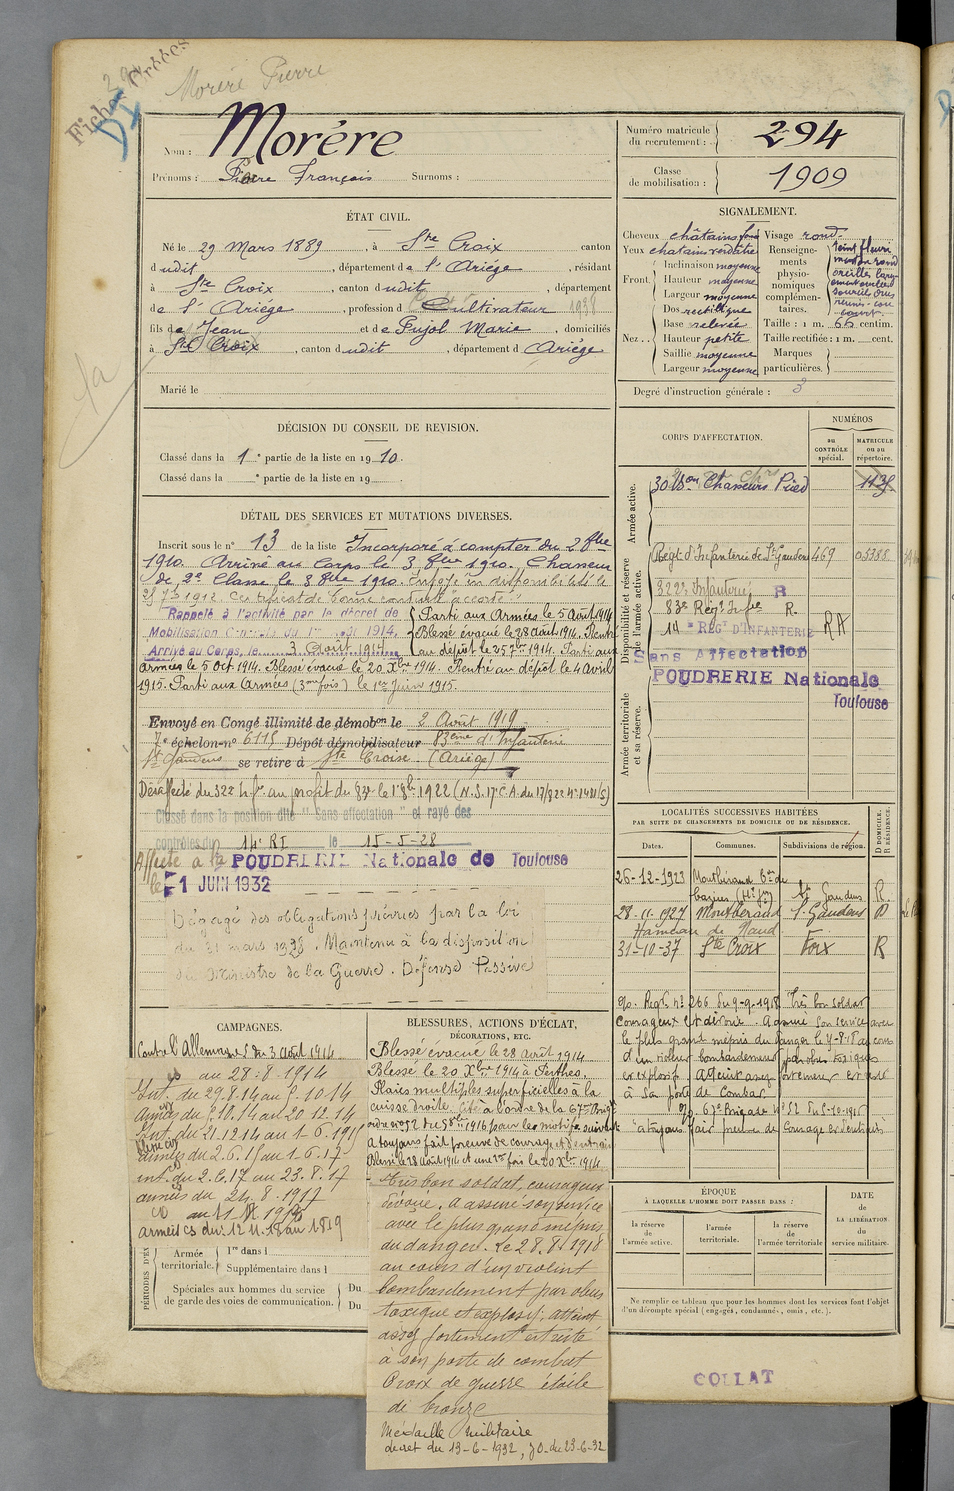 Fiches
Morère Pierre
Nom : Morère
Prénoms : Pierre François Surnoms :
Numéro matricule
du recrutement : 294
Classe
de mobilisation : 1909
ÉTAT CIVIL.
Né le 29 Mars 1889, à Ste Croix canton
dudit, département de l'Ariége, résidant
à Ste Croix, canton dudit, département
de l'Ariége, profession d Cultivateur 1938
fils de Jean et de Pujol Marie, domiciliés
à Ste Croix, canton dudit, département d Ariége
Marié le
SIGNALEMENT.
Cheveux châtains Visage rond
Yeux chatains verdâtre Renseigne-
ments
physio-
nomiques
complémen-
taires.
teint fleuri
menton rond
oreilles
sourcils drus
Front. Inclinaison moyenne
Hauteur moyenne
Largeur moyenne
Nez . . Dos rectiligne
Base relevée
Hauteur petite
Saillie moyenne
Largeur moyenne
Taille : 1 m. 66 centim.
Taille rectifiée : 1 m. cent.
Marques
particulières.
Degré d'instruction générale : 3
DÉCISION DU CONSEIL DE REVISION.
Classé dans la 1e partie de la liste en 1910.
Classé dans la e partie de la liste en 19
DÉTAIL DES SERVICES ET MUTATIONS DIVERSES.
Inscrit sous le n° 13 de la liste Incorporé à compter du 2 8bre
1910. Arrivé au Corps le 3 8bre 1910. Chasseur
de 2e Classe le 3 8bre 1910. Envoyé en disponibilité le
25 7bre 1912. Certificat de bonne conduite "accordé".
Rappelé à l'activité par le décret de
Mobilisation Générale du 1er août 1914.
Arrivé au Corps, le 3 Août 1914
Parti aux Armées le 5 Août 1914
Blessé évacué le 28 août 1914. Rentré
au dépôt le 25 7bre 1914. Parti aux
Armées le 5 Oct. 1914. Blessé évacué le 20 Xbre 1914. Rentré au dépôt le 4 Avril
1915. Parti aux Armées (3me fois) le 1er Juin 1915.
Envoyé en Congé illimité de démobon le 2 Août 1919
7e échelon n° 6115 Dépôt démobilisateur 83ème d'Infanterie
St Gaudens se retire à Ste Croix (Ariége)
Désaffecté du 322e au profit du 83e le 1er 8bre 1922
Classé dans la position dite "Sans affectation" et rayé des
contrôles du 14e RI le 15-5-28
Affecté à la POUDRERIE Nationale de Toulouse
le 1 JUIN 1932
Dégagé des obligations prévues par la loi
du 31 mars 1928. Maintenu à la disposition
du Ministre de la Guerre. Défense Passive
CORPS D'AFFECTATION.
NUMÉROS
au
CONTRÔLE
spécial.
MATRICULE
ou au
répertoire.
Armée active.
30 Bon Chasseurs Pied
Disponibilité et réserve
de l'armée active.
Régt d'Infanterie de St Gaudens 469 05388
322e Infanterie R
83e Régt Infie R.
14e REGT D'INFANTERIE RA
Sans Affectation
Armée territoriale
et sa réserve.
POUDRERIE Nationale
Toulouse
LOCALITÉS SUCCESSIVES HABITÉES
PAR SUITE DE CHANGEMENTS DE DOMICILE OU DE RÉSIDENCE.
Dates. Communes. Subdivisions de région. D DOMICILE. R RÉSIDENCE.
26-12-1923 Montbéraud St Gaudens R.
28-11-1927 Montberaud St Gaudens D
Hameau de Naud
31-10-37 Ste Croix Foix R
Régt n° 266 du 9-9-1918 Très bon soldat
courageux et dévoué. A assuré son service avec
le plus grand mépris du danger
d'un violent bombardement par obus toxiques
et explosifs. Atteint assez fortement est resté
à son poste de combat
67e Brigade n° 52 du 5-10-1916
a toujours fait preuve de courage et d'entrain
CAMPAGNES.
Contre l'Allemagne du 3 Août 1914
au 28-8-1914
Int. du 29.8.14 au 5.10.14
Armées du 5.10.14 au 20.12.14
Int. du 21.12.14 au 1-6.1915
armées du 2.6.15 au 1-6.17
int. du 2.6.17 au 23.8.17
armées du 24.8.1917
au 11.11.1918
Armées CS du 12.11.18 au 1.8.19
BLESSURES, ACTIONS D'ÉCLAT,
DÉCORATIONS, ETC.
Blessé évacué le 28 août 1914
Blessé le 20 Xbre 1914 à Perthes.
Plaies multiples superficielles à la
cuisse droite. Cité à l'ordre de la 67me Brig.
ordre n° 52 du 5 8bre 1916 pour les motifs suivants
A toujours fait preuve de courage et d'entrain
Blessé le 28 août 1914 et une 2me fois le 20 Xbre 1914.
Très bon soldat, courageux
dévoué. A assuré son service
avec le plus grand mépris
du danger. Le 28.8.1918
au cours d'un violent
bombardement par obus
toxique et explosif, atteint
assez fortement est resté
à son poste de combat
Croix de guerre étoile
de bronze
Médaille militaire
décret du 13-6-1932, JO. du 23-6-32
PÉRIODES D'EX
Armée
territoriale. 1re dans l
Supplémentaire dans l
Spéciales aux hommes du service
de garde des voies de communication. Du
Du
ÉPOQUE
À LAQUELLE L'HOMME DOIT PASSER DANS :
la réserve
de
l'armée active.
l'armée
territoriale.
la réserve
de
l'armée territoriale
DATE
de
LA LIBÉRATION
du
service militaire.
Ne remplir ce tableau que pour les hommes dont les services font l'objet
d'un décompte spécial (engagés, condamnés, omis, etc.).
COLLAT